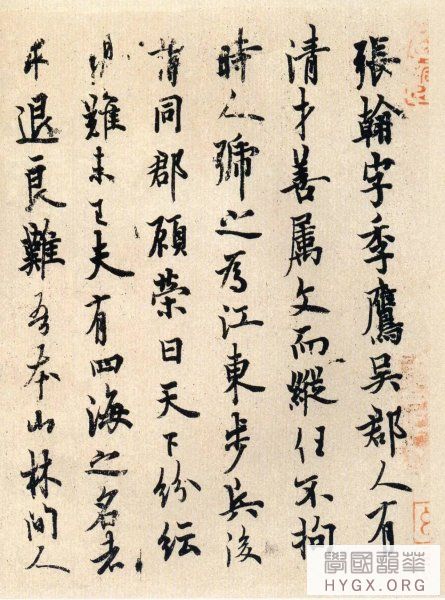 張翰字季鷹吳郡人有
清才善属文而縱任不拘
時人號之為江東步兵後
謂同郡顧榮曰天下紛紜
難未已夫有四海之名者
求退良難吾本山林間人
華韻國學
HYGX.ORG